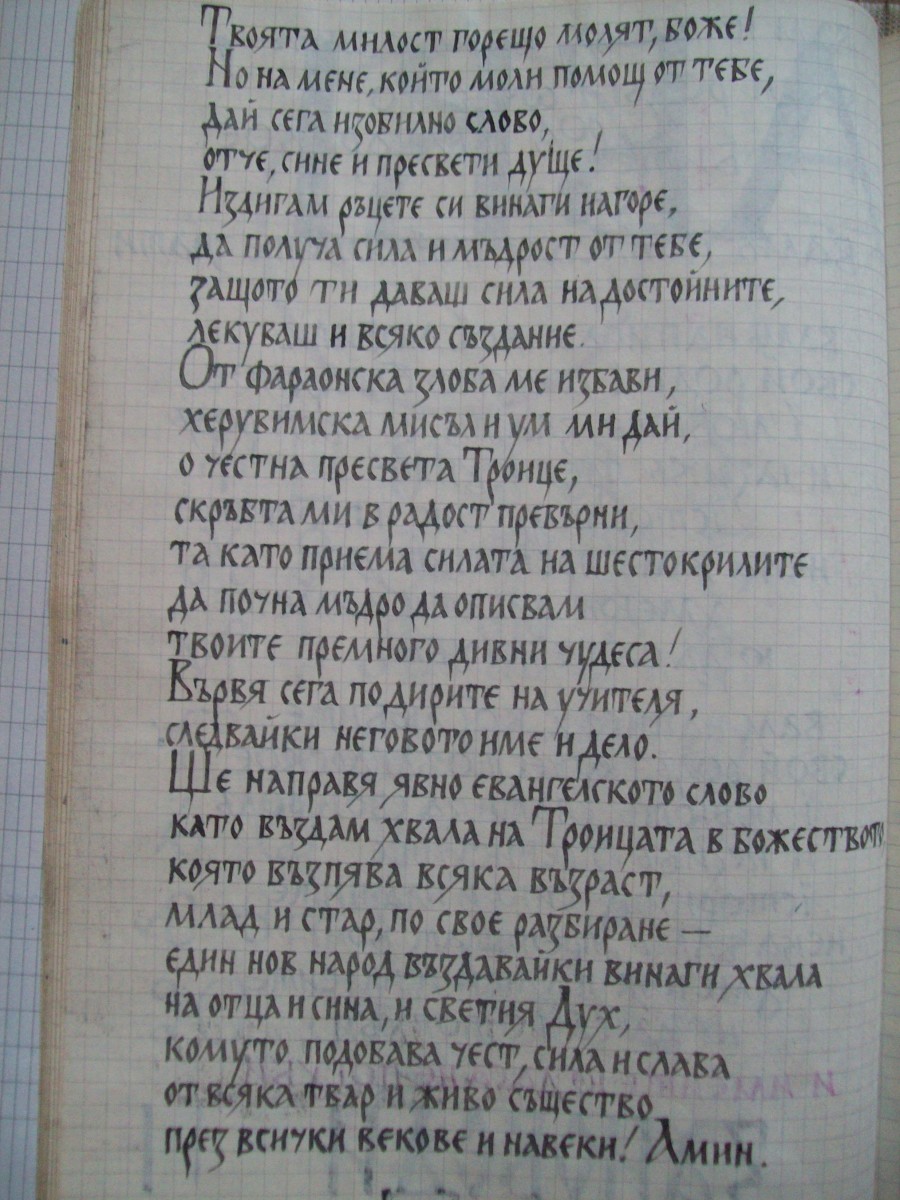 Твоята милост горещо молят, боже!
Но на мене, който моли помощ от тебе,
дай сега изобилно слово,
отче, сине и пресвети душе!
Издигам ръцете си винаги нагоре,
да получа сила и мъдрост от тебе,
защото ти даваш сила на достойните,
лекуваш и всяко създание.
От фараонска злоба ме избави,
херувимска мисъл и ум ми дай,
о честна пресвета Троице,
скръбта ми в радост превърни,
та като приема силата на шестокрилите
да почна мъдро да описвам
твоите премного дивни чудеса!
Вървя сега по дирите на учителя,
следвайки неговото име и дело.
Ще направя явно евангелското слово
като въздам хвала на Троицата в божеството
която възпява всяка възраст,
млад и стар, по свое разбиране —
един нов народ въздавайки винаги хвала
на отца и сина, и светия Дух,
комуто подобава чест, сила и слава
от всяка твар и живо същество
през всички векове и навеки! Амин.